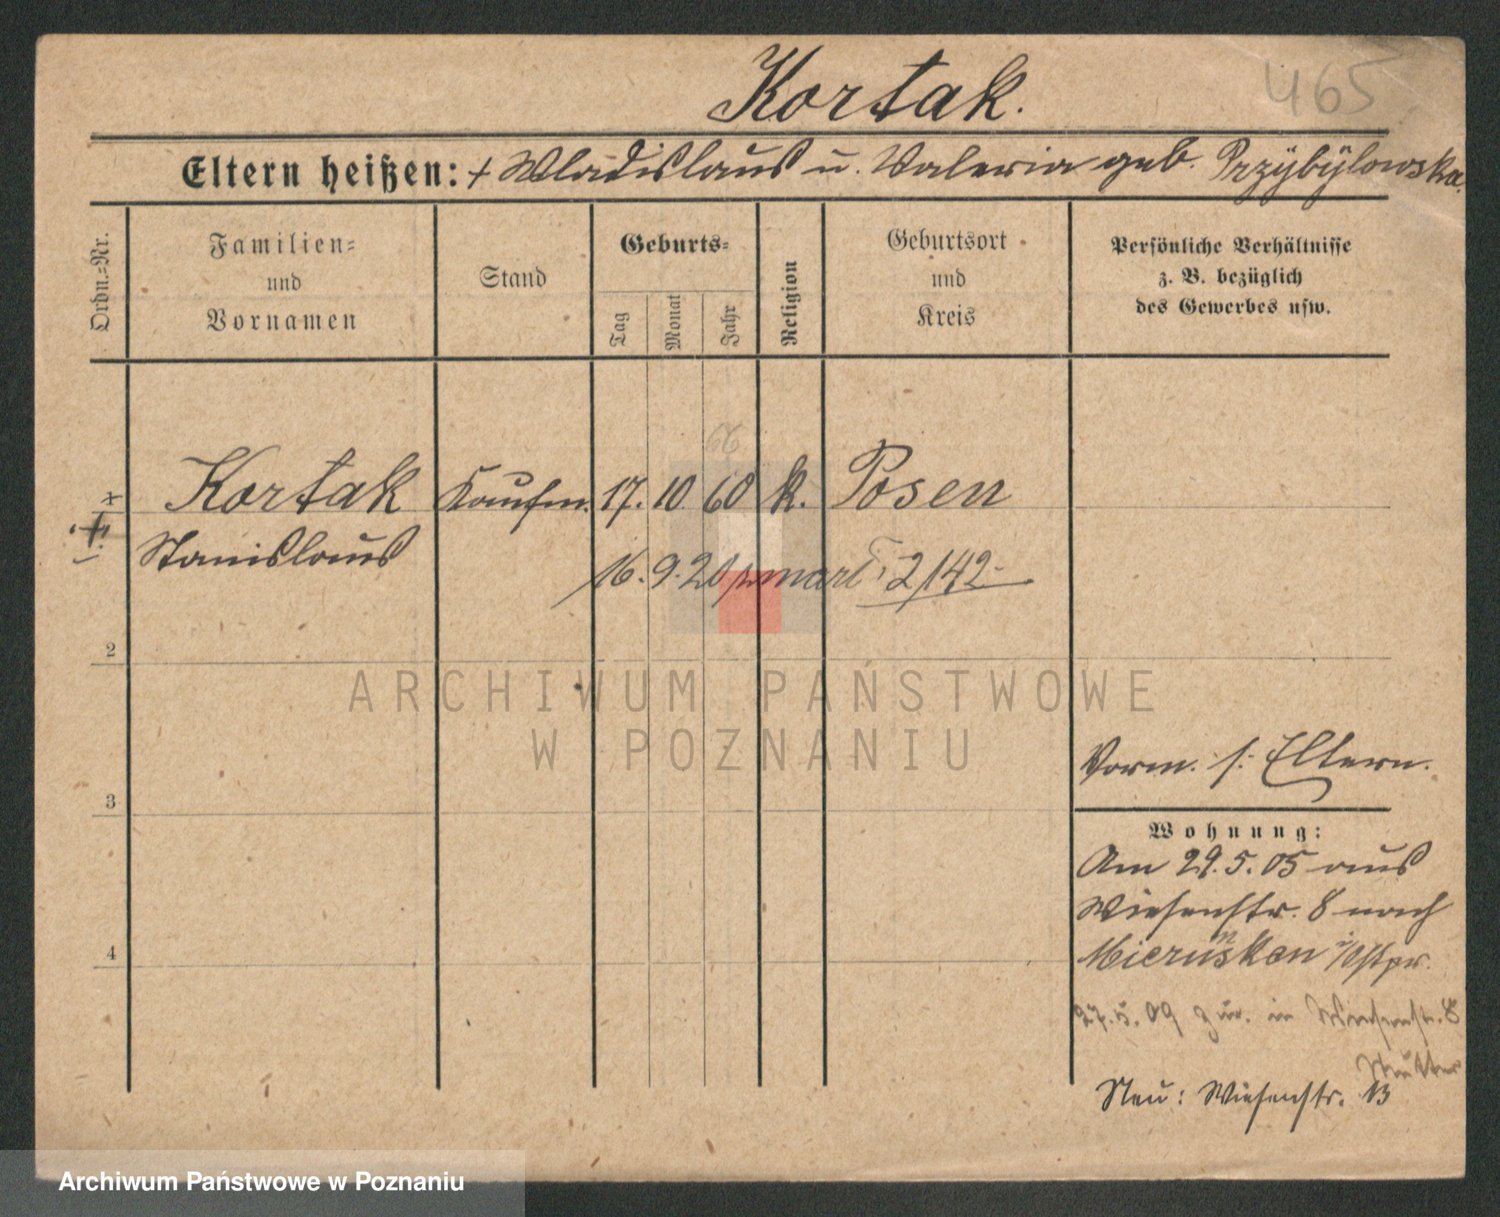 465
Kortak.
Eltern heißen: + Wladislaus u. Valeria geb. Przybylowska.
Ordn.=Nr.
Familien=
und
Vornamen
Stand
Geburts=
Tag
Monat
Jahr
Religion
Geburtsort
und
Kreis
Persönliche Verhältnisse
z. B. bezüglich
des Gewerbes usw.
Kortak Kaufm. 17. 10. 60 k. Posen
Stanislaus
16. 9. 20 2/142
2
ARCHIWUM PAŃSTWOWE
W POZNANIU
3
4
Vorm. s. Eltern.
Wohnung:
Am 29.5.05 aus
Wiesenstr. 8 nach
Mierunsken i/Ostpr.
27.5.09 zur. in Wiesenstr. 8
Mutter
Neu: Wiesenstr. 13
Archiwum Państwowe w Poznaniu